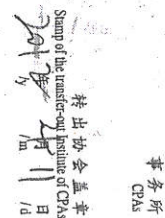 事务所
CPAs
转出协会盖章
Stamp of the transfer-out Institute of CPAs
年 月 11 日
/y /m /d